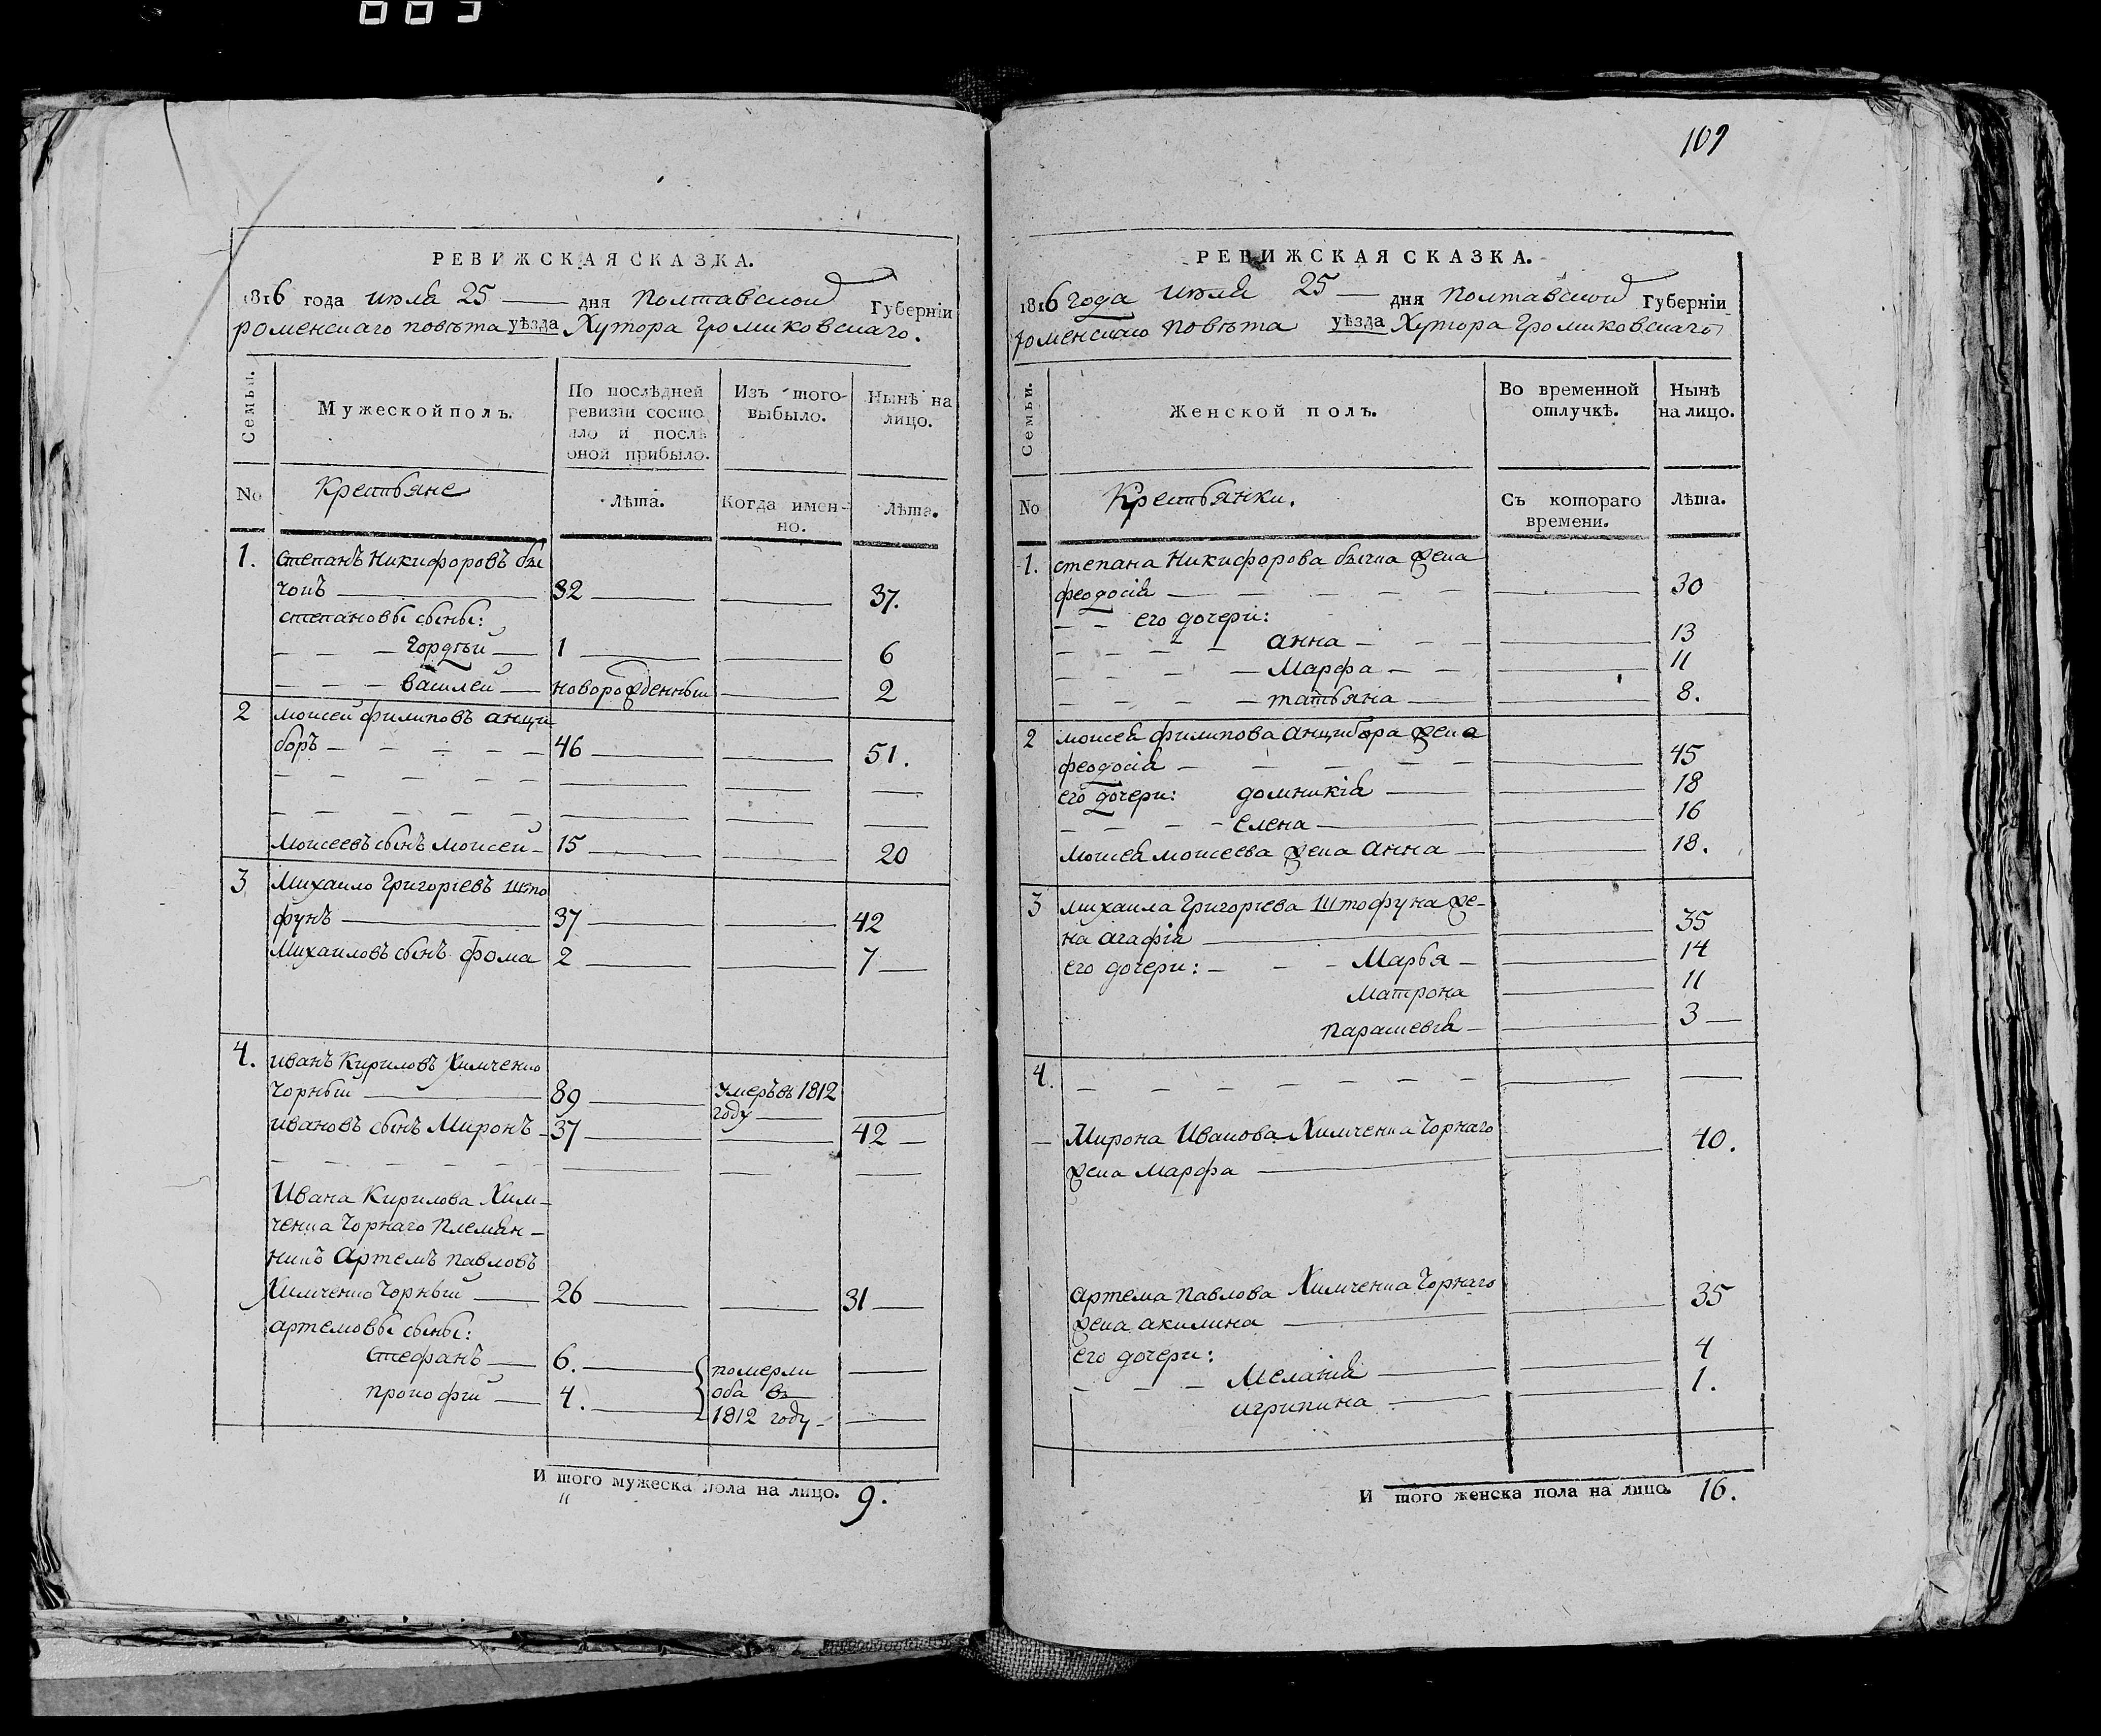 109
РЕВИЖСКАЯ СКАЗКА.
1816 года июля 25 дня Полтавской Губерніи
роменскаго повѣта уѣзда Хутора Громиковскаго.
Семьи.
Мужеской полъ.
По послѣдней ревизіи состояло и послѣ оной прибыло.
Изъ того выбыло.
Нынѣ на лицо.
No
Крестьяне
Лѣта.
Когда именно.
Лѣта.
1. степанъ Никифоровъ бы
чокъ 32 37.
степановы сыны:
Гордѣй 1 6
василей новорожденный 2
2 моисей филиповъ анци
боръ 46 51.
Моисеевъ сынъ моисей 15 20
3 Михаило Григоріевъ што
фунъ 37 42
Михаиловъ сынъ фома 2 7
4. иванъ Кириловъ Химченко
Чорный 89 умеръ въ 1812
году
ивановъ сынъ Миронъ 37 42
Ивана Кирилова Хим-
ченка Чорнаго Племян-
никъ Артемъ павловъ
Химченко Чорный 26 31
артемовы сыны:
Стефанъ 6. померли
прокофій 4. оба въ
1812 году
И того мужеска пола на лицо. 9.
РЕВИЖСКАЯ СКАЗКА.
1816 года июля 25 дня Полтавской Губерніи
роменскаго повѣта уѣзда Хутора Громиковскаго
Семьи.
Женской полъ.
Во временной отлучкѣ.
Нынѣ на лицо.
No
Крестьянки.
Съ котораго времени.
Лѣта.
1. степана Никифорова бычка жена
феодосія 30
его дочери:
анна 13
Марфа 11
татьяна 8.
2 моисея филипова анцибора жена
феодосія 45
его дочери: домникія 18
елена 16
Моисея моисеева жена анна 18.
3 михаила Григоріева Штофуна же-
на агафія 35
его дочери: Марья 14
Матрона 11
параскевія 3
4.
Мирона Иванова Химченка Чорнаго
жена марфа 40.
артема Павлова Химченка Чорнаго
жена акилина 35
его дочери:
Меланія 4
агрипина 1.
И того женска пола на лицо. 16.